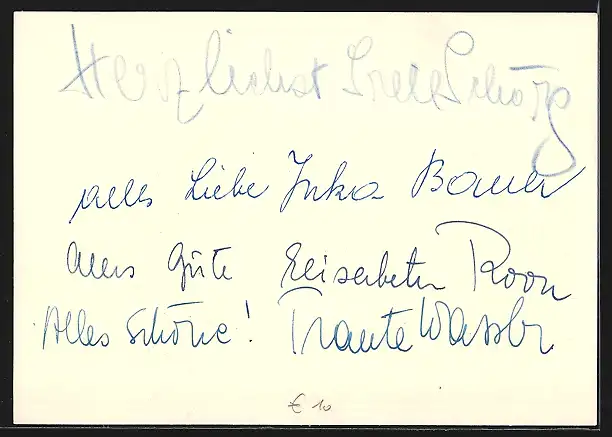 Herzlichst Grete Schörg
alles Liebe Inka Bauer
Alles Gute Elisabeth Roon
Alles Schöne! Traute Wassler
€ 10